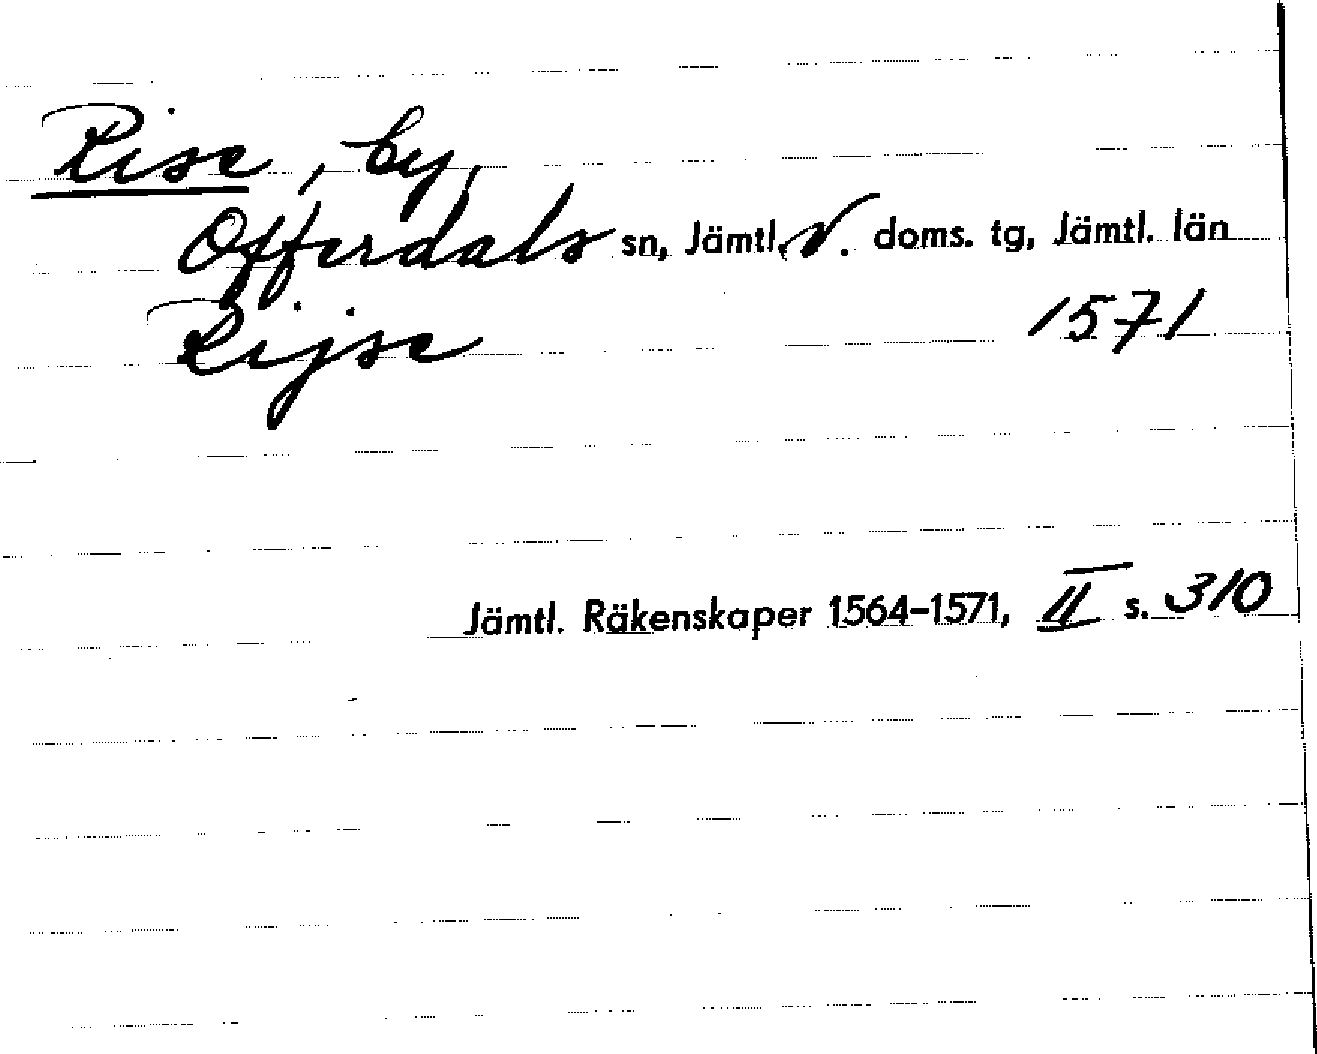 Rise, by,
Offerdals sn, Jämtl. V. doms. tg, Jämtl. län
Rijse 1571
Jämtl. Räkenskaper 1564-1571, II s. 310